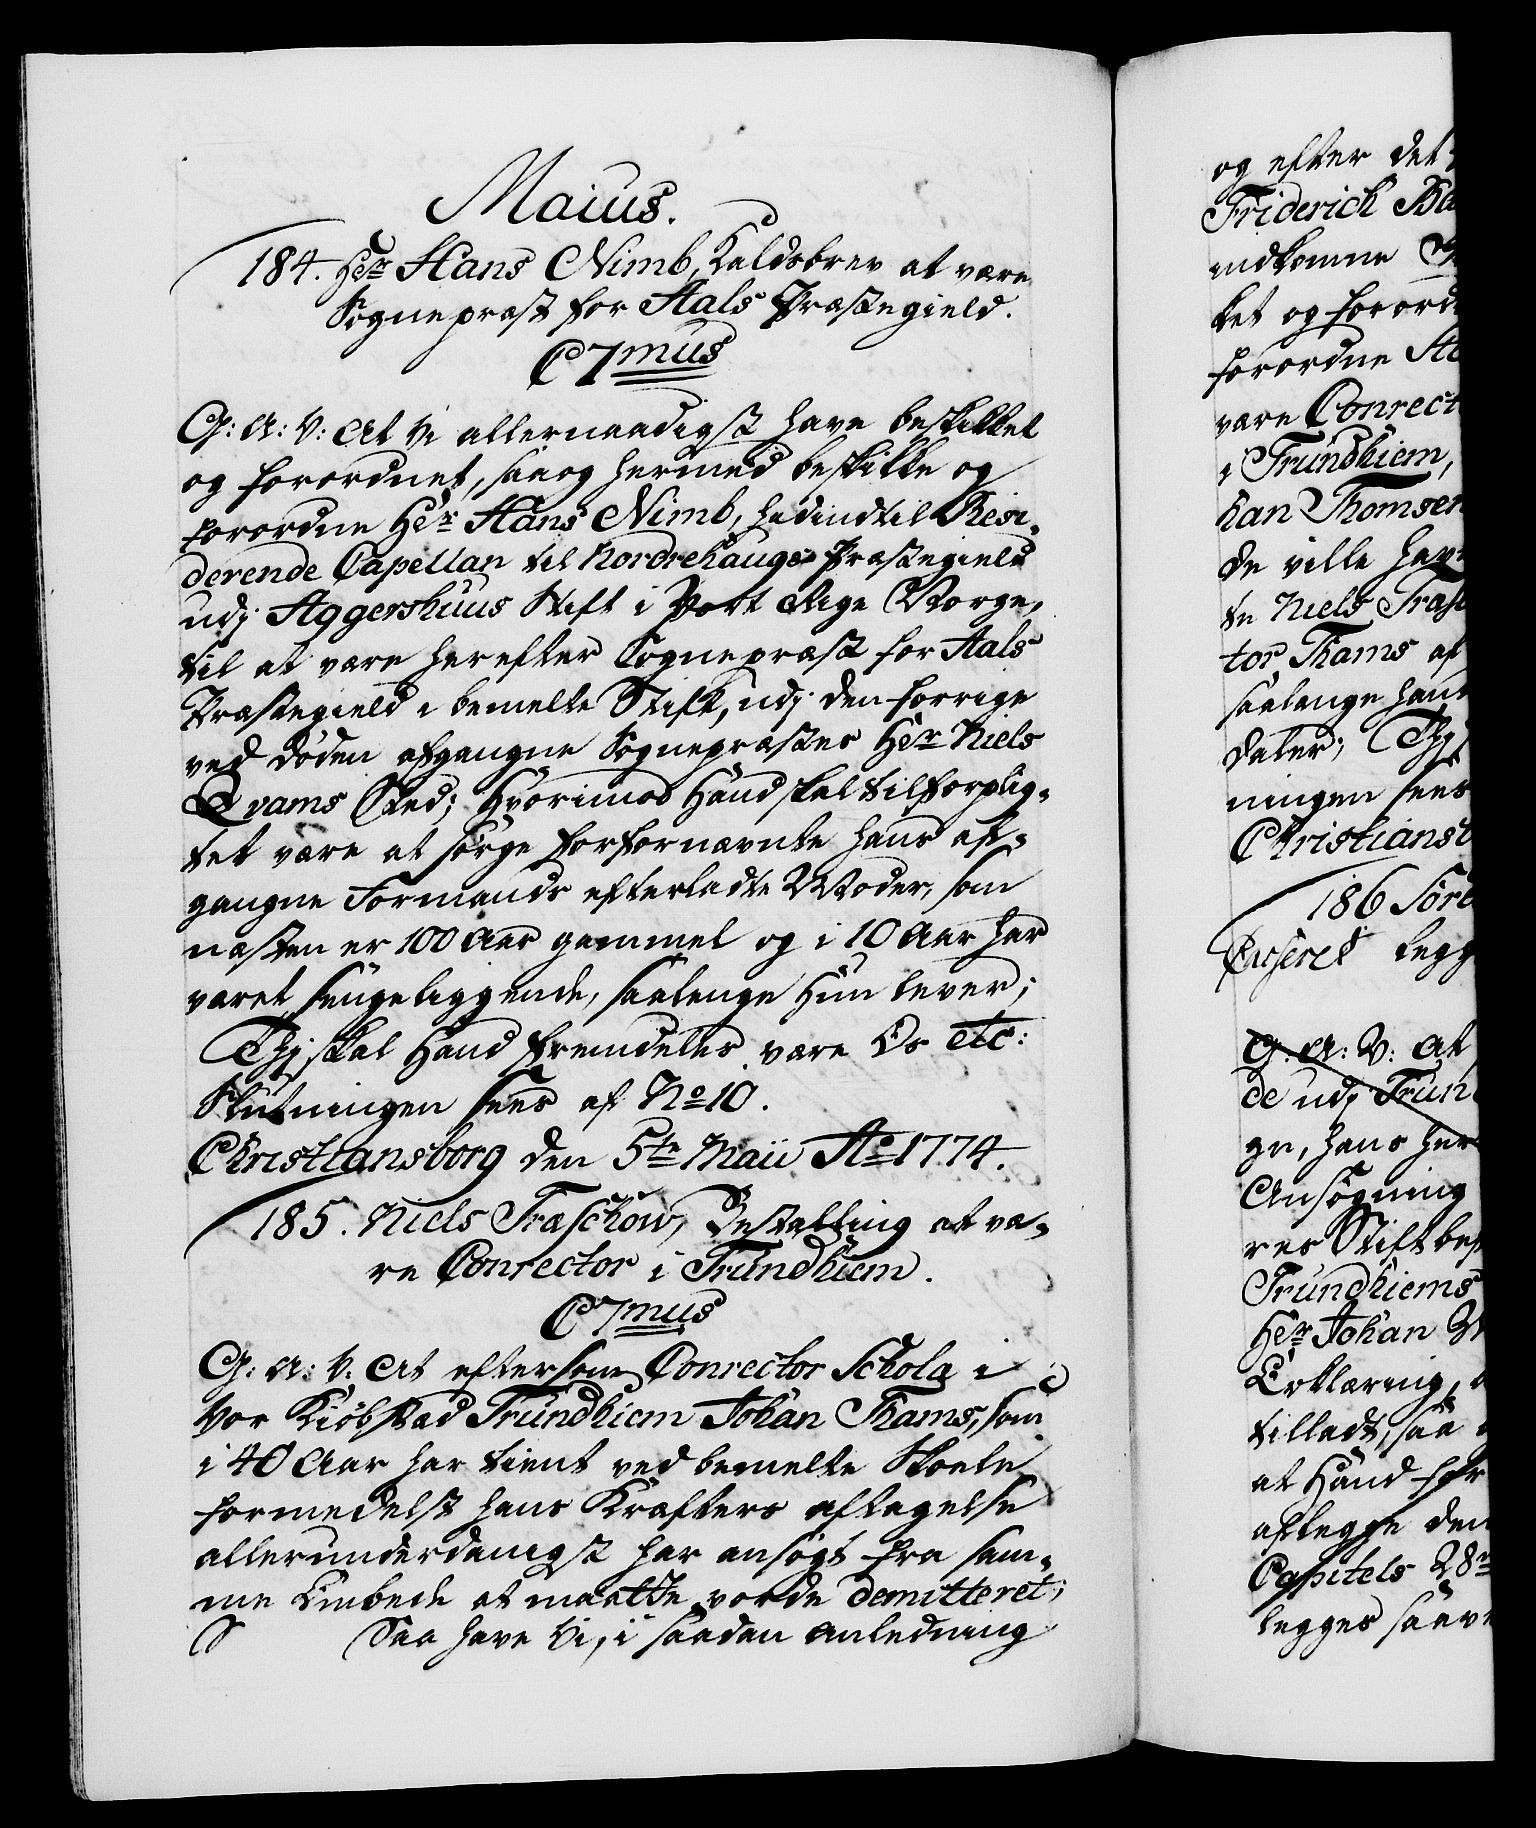 Maius.
184. Her Hans Nimb, Kaldsbrev at være
Sognepræst for Aals Præstegield.
C7mus
G: A: V: At Vi allernaadigst have beskikket
og forordnet, saa og hermed beskikke og
forordne Her Hans Nimb, hidindtil Resi-
derende Capellan til Nordrehaugs Præstegield
udj Aggershuus Stift i Vort Rige Norge,
til at være herefter Sognepræst for Aals
Præstegield i bemelte Stift, udj den forrige
ved døden afgangne Sognepræstes Her Niels
Qvams Sted; Hvorimod Hand skal tilforplig-
tet være at sørge for fornævnte hans af-
gangne Formands efterladte Moder, som
næsten er 100 Aar gammel og i 10 Aar har
været sengeliggende, saalenge Hun lever;
Thj skal Hand fremdeles være Os etc:
Slutningen sees af No 10.
Christiansborg den 5te Maii Ao 1774.
185. Niels Træschow, Bestalling at væ-
re Conrector i Trundhiem.
C7mus
G: A: V: At eftersom Conrector Scholæ i
Vor Kiøbstad Trundhiem Johan Thams, som
i 40 Aar har tient ved bemelte Skoele
formedelst hans Kræfters aftagelse
allerunderdanigst har ansøgt fra sam-
me Embede at maatte vorde demitteret;
Saa have Vi, i saadan Anledning
og efter det
Friderich
indkomne
ket og forord
forordne
være Conrect
i Trundhiem,
han Thomsen
de ville hav
te Niels Træs
tor Thams af
saalenge hand
daler; Thj
ningen sees
Christiansb
186 Søre
Casseret legg
G: A: V: At
de udj Trun
ge, hans her
Ansøgning
res Stiftbef
Trundhiems
Her Johan
Erklæring,
tilladt, saa
at Hand for
aflegge den
Capitels 28
legges saave